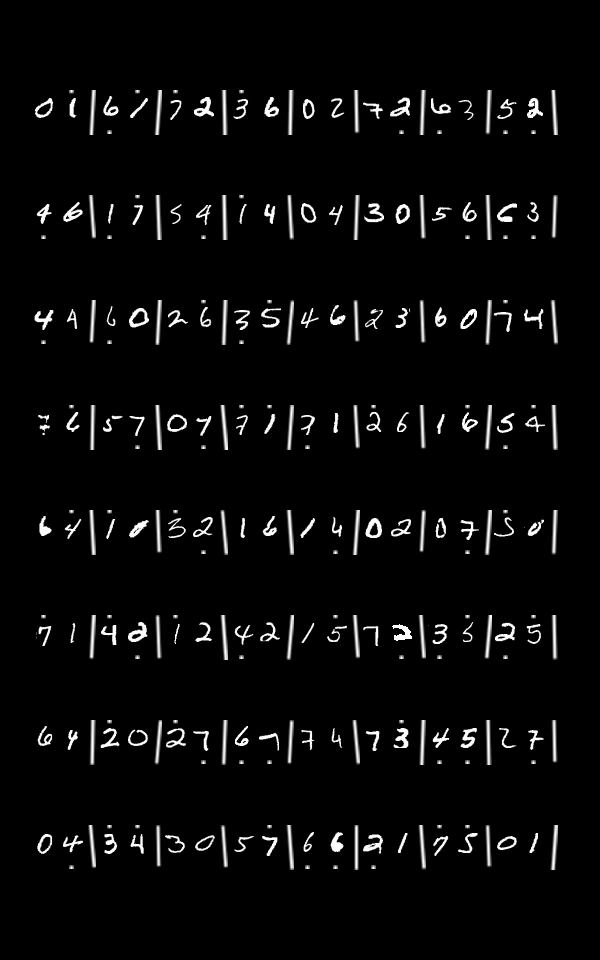 0 1̇ | 6̣ 1̇ | 7̇ 2 | 3̇ 6 | 0 2 | 7 2̣ | 6̣ 3 | 5̣ 2̣ |
4̣ 6 | 1̣ 7̇ | 5 4̣ | 1̇ 4 | 0 4 | 3 0 | 5 6̣ | 6̣ 3̣ |
4̣ 4 | 6̇ 0 | 2 6̇ | 3̣ 5̇ | 4 6 | 2̇ 3 | 6 0 | 7̇ 4 |
7̣ 6̇ | 5 7̣ | 0 7̣ | 7̇ 1̇ | 7̣ 1 | 2̇ 6 | 1 6̇ | 5̣ 4̇ |
6 4̇ | 1̇ 0 | 3̇ 2̣ | 1 6 | 1 4̣ | 0 2 | 0 7̣ | 5̇ 0 |
7̇ 1 | 4 2̣ | 1̇ 2 | 4̣ 2 | 1 5̇ | 7 2̣ | 3̣ 5̇ | 2̣ 5̇ |
6 4 | 2̇ 0 | 2̇ 7̣ | 6̣ 7̣ | 7 4 | 7 3̇ | 4̣ 5̣ | 2 7̣ |
0 4̣ | 3̇ 4̇ | 3 0 | 5 7̇ | 6̣ 6̣ | 2̣ 1 | 7̇ 5̇ | 0 1 |